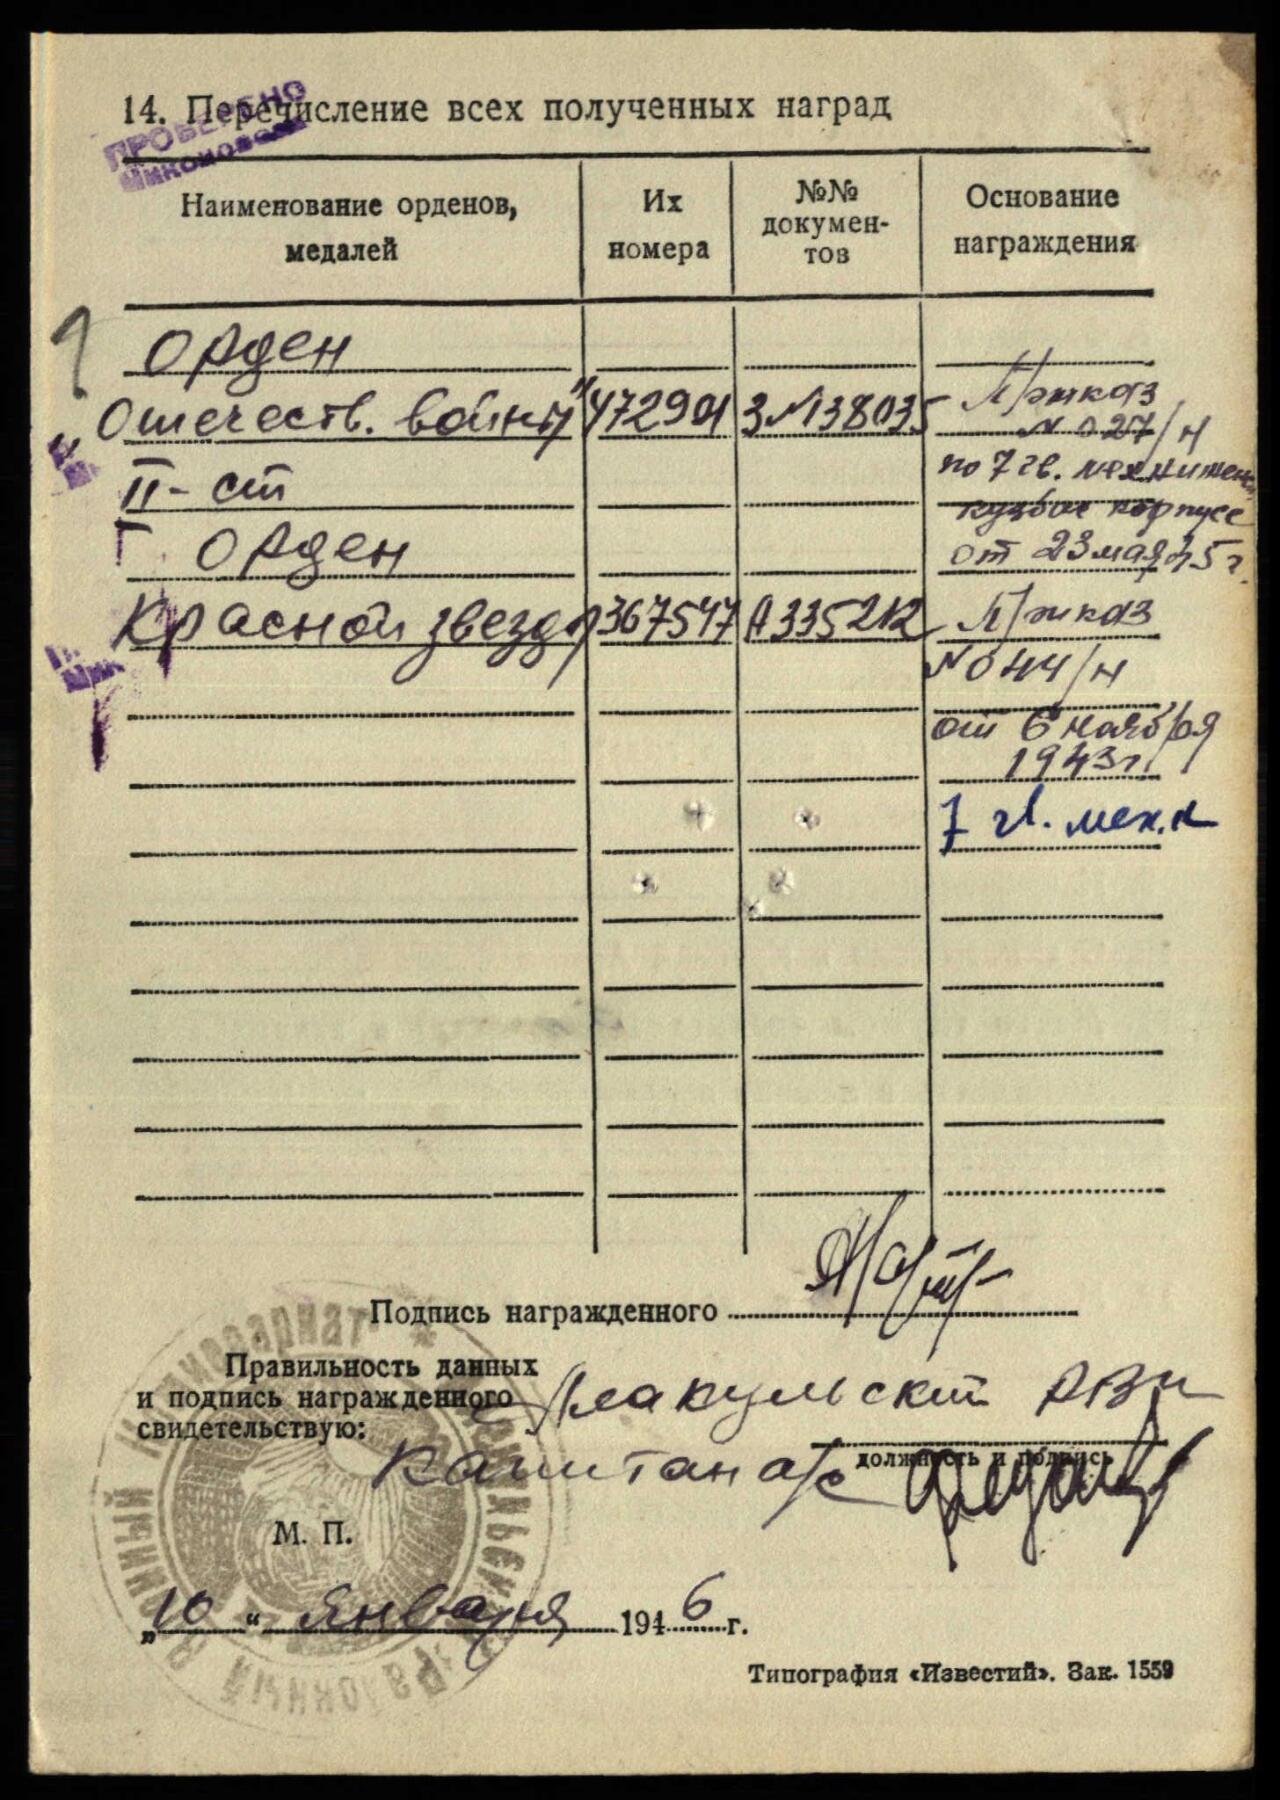 14. Перечисление всех полученных наград
ПРОВЕРЕНО
Наименование орденов, медалей
Их номера
№№ документов
Основание награждения
Орден
Отечеств. войны 472901 З№138035 Приказ
№ 027/н
II-ст по 7 гв. мех.
корпусе
Орден от 23 мая 45 г.
Красной звезды 367547 А335212 Приказ
№ 044/н
от 6 ноября
1943 г.
7 гв. мех. к
Подпись награжденного
Правильность данных
и подпись награжденного
свидетельствую:
РВК
Капитан а/с
должность и подпись
М. П.
„10“ Января 1946 г.
Типография «Известий». Зак. 1559